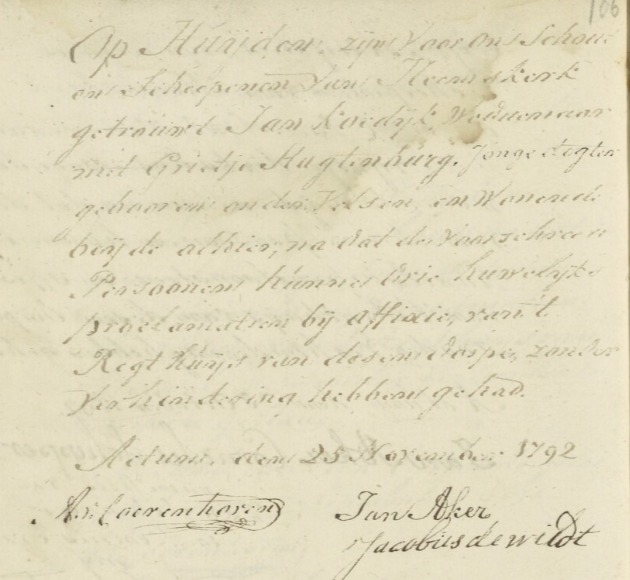 106
Op Huijden zijn Voor ons Schout
en Scheepenen Van Heemskerk
getrouwt Jan Koedijk, Weduenaar
met Grietje Hugtenburg. Jonge dogter
gebooren onder Velsen, en Wonende
beijde alhier, na dat de Voorschreven
Persoonen hunne drie huwelijks
proclamatien bij affixie, van 't
Regthuijs van desen dorpe, zonder
Verhindering hebben gehad.
Actum den 25 November 1792
Jan Aker
Jacobus de wildt